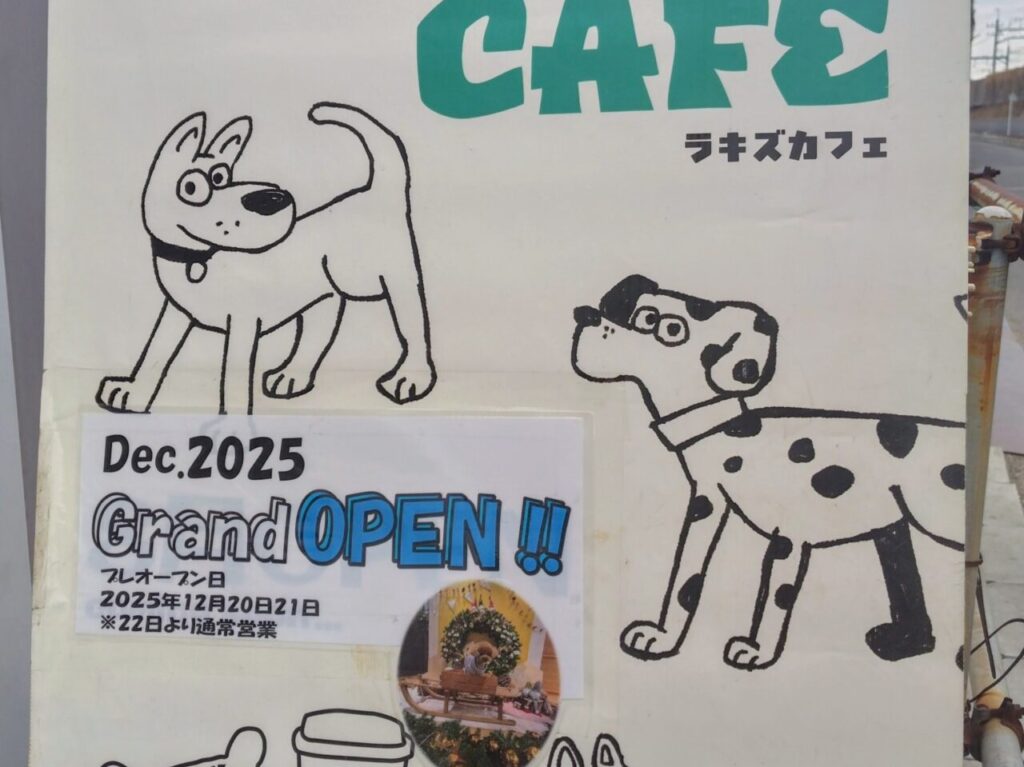 CAFE
ラキズカフェ
Dec.2025
Grand OPEN !!
プレオープン日
2025年12月20日21日
※22日より通常営業